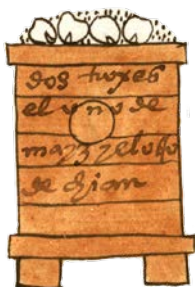 dos troxes
el uno de
mayz yel otro
de chian